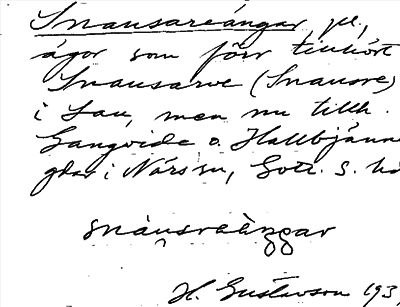 Snausareängar, pl.,
ägor som förr tillhört
Snausarve (Snausre)
i Lau, men nu tillh.
Gangvide o. Hallbjänne
gdar i När sn, Gotl. S. hd
snáusraèngar
H. Gustavson 193